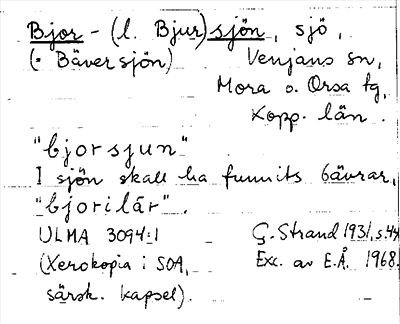 Bjor - (l. Bjur)sjön, sjö,
(= Bäversjön) Venjans sn,
Mora o. Orsa tg,
Kopp. län.
"bjorsjun"
I sjön skall ha funnits bävrar,
"bjorilår".
ULMA 3094:1 G. Strand 1931, s.44
(Xerokopia i SOA, Exc. av E.Å. 1968.
särsk. kapsel).